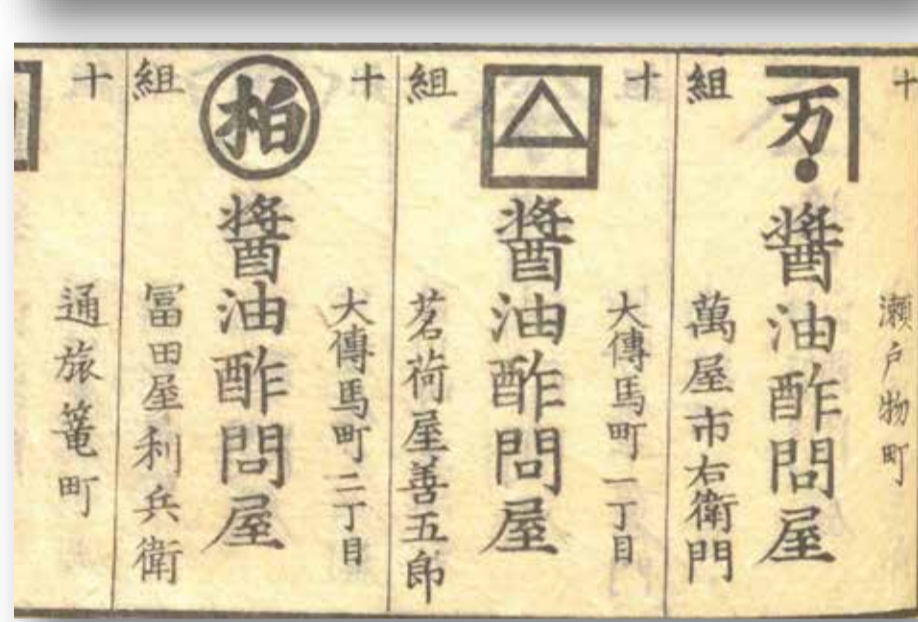 十
瀬戸物町
万
醤油酢問屋
組
萬屋市右衛門
十
大傳馬町一丁目
醤油酢問屋
組
茗荷屋善五郎
十
大傳馬町二丁目
柏
醤油酢問屋
組
冨田屋利兵衛
十
通旅篭町